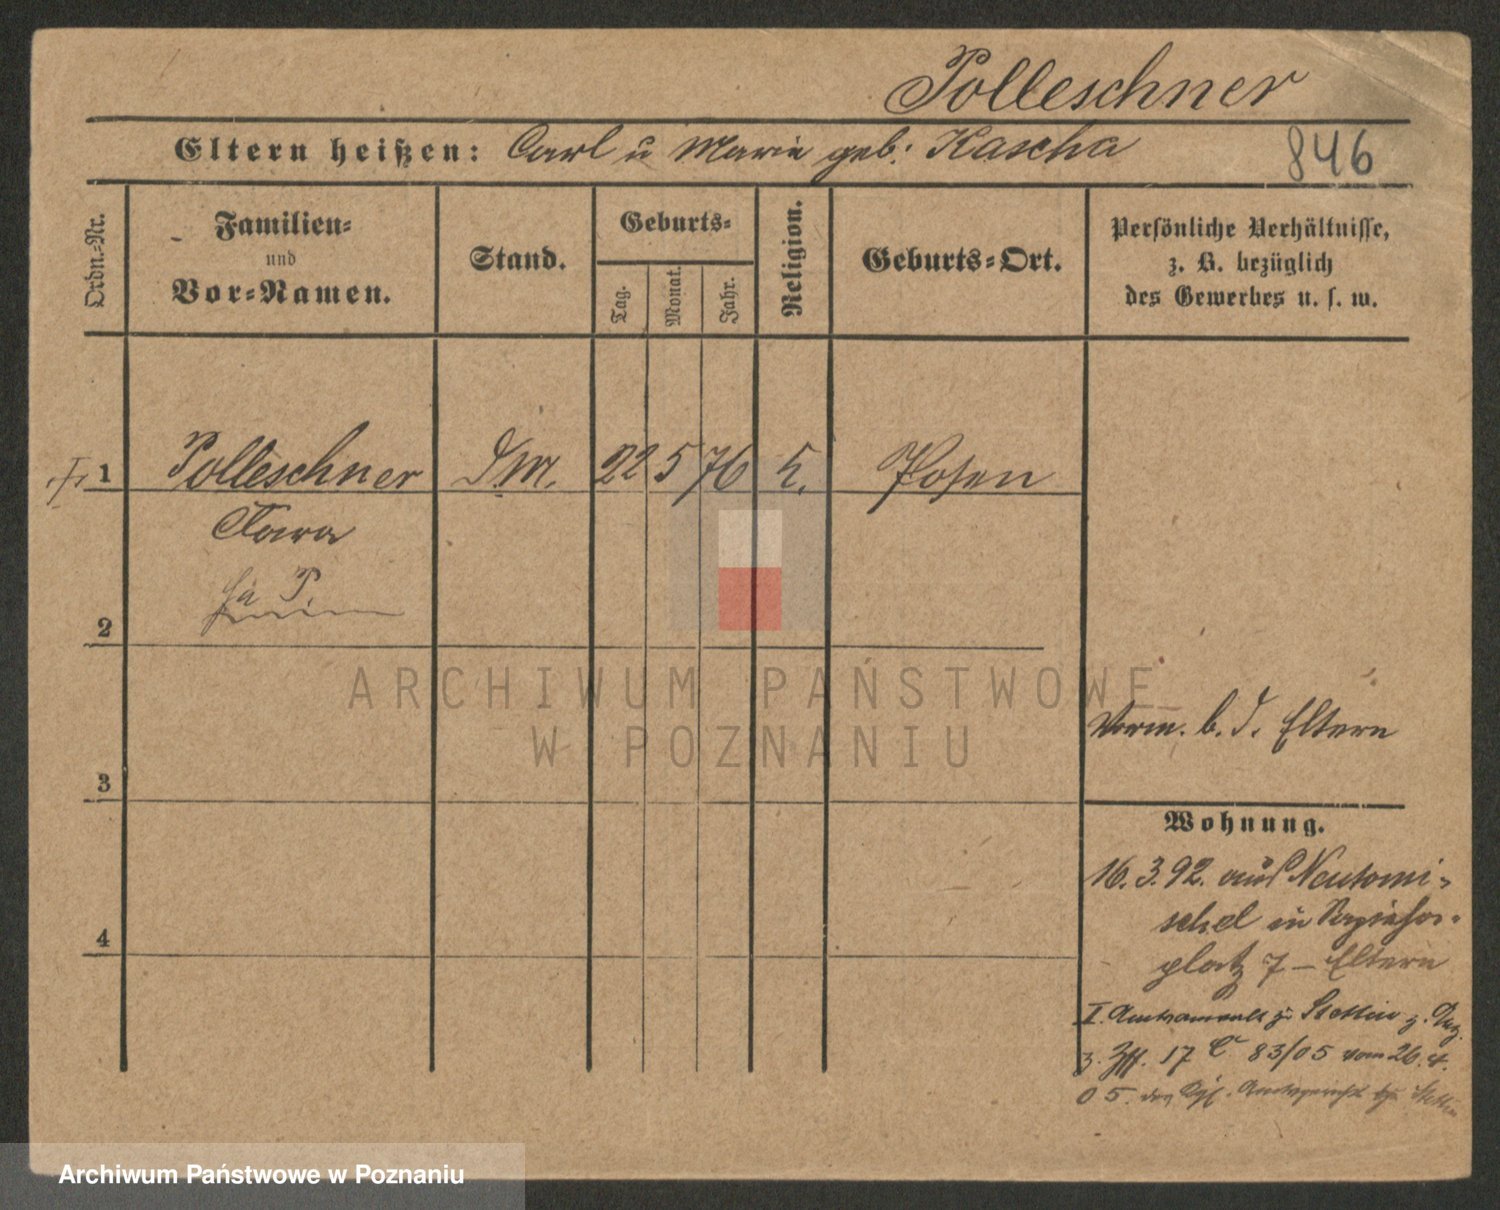 Polleschner
Eltern heißen: Carl u Marie geb: Kascha
846
Ordn.-Nr.
Familien-
und
Vor-Namen.
Stand.
Geburts-
Tag.
Monat.
Jahr.
Religion.
Geburts-Ort.
Persönliche Verhältnisse,
z. B. bezüglich
des Gewerbes u. s. w.
I 1 Polleschner D.M. 22 5 76 Posen
2
3
4
Vorm. b. d. Eltern
Wohnung.
16. 3. 92. aus Neutomi-
schel in
platz 7 – Eltern
I. zu Stettin z.
3. 17 C 83/05 vom 26. 4.
05. des Kgl. Amtsgericht Stettin
ARCHIWUM PAŃSTWOWE
W POZNANIU
Archiwum Państwowe w Poznaniu